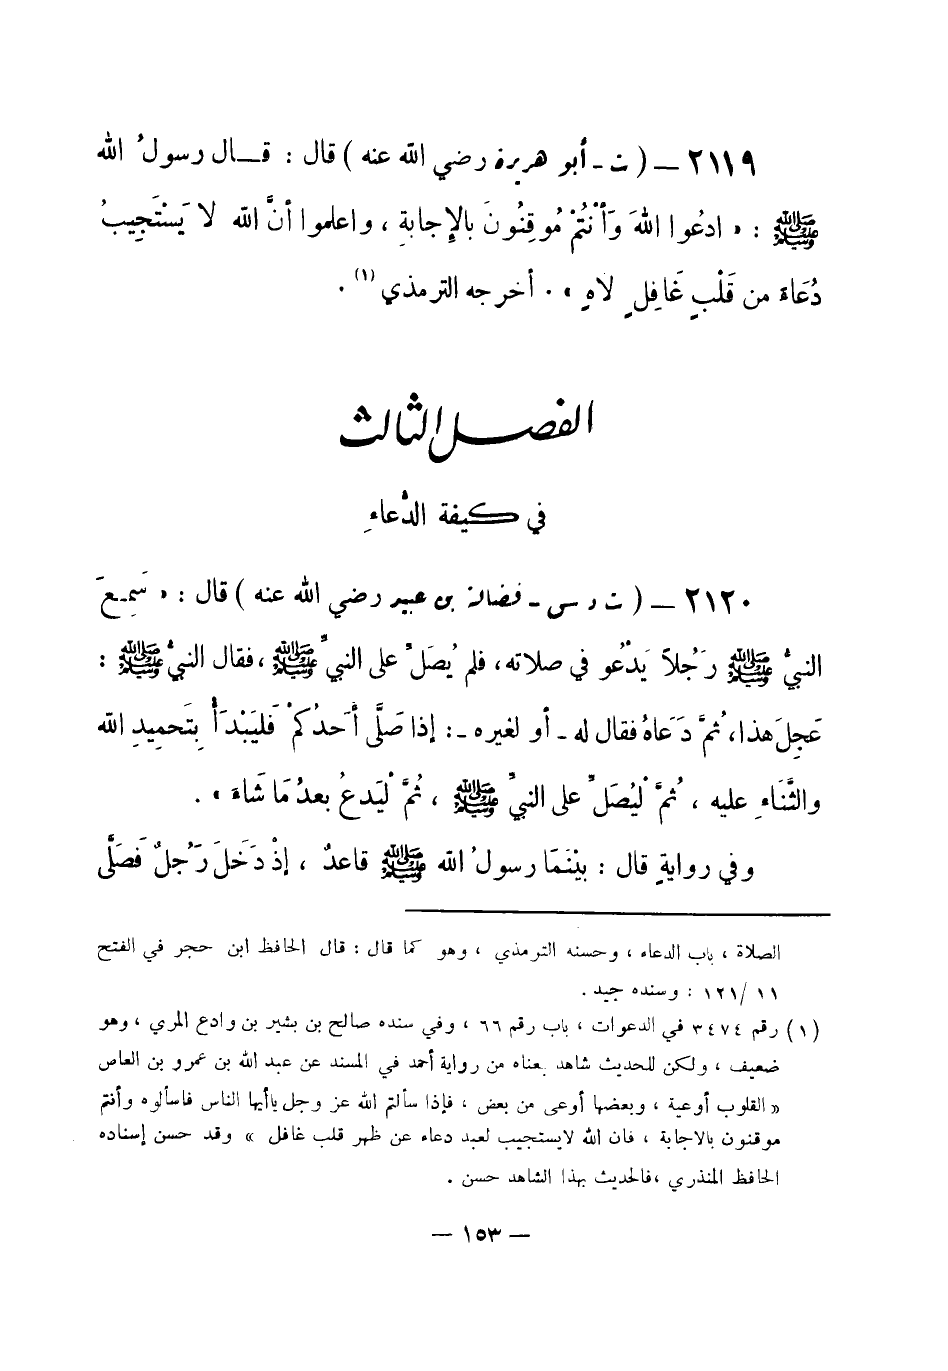 ٢١١٩ — ( ت - أبو هريرة رضي الله عنه ) قال : قــال رسولُ الله
ﷺ : « ادعُوا اللهَ وَأَنْتُمْ مُوقِنُونَ بالإِجابةِ ، واعلموا أنَّ الله لا يَسْتَجِيبُ
دُعَاءً من قَلْبٍ غَافِلٍ لاهٍ » . أخرجه الترمذي (١) .
الفصل الثالث
في كيفة الدُّعاءِ
٢١٢٠ — ( ت د س - فضالة بن عبيد رضي الله عنه ) قال : « سَمِعَ
النبيُّ ﷺ رَجُلاً يَدْعُو في صلاته، فلم يُصَلِّ على النبيِّ ﷺ ،فقال النبيُّ ﷺ :
عَجِلَ هذا، ثُمَّ دَعَاهُ فقال له - أو لغيره -: إذا صَلَّى أَحَدُكُمْ فَليَبْدَأْ بِتَحمِيدِ الله
والثَّنَاءِ عليه ، ثُمَّ لْيُصَلِّ على النبيِّ ﷺ ، ثُمَّ لْيَدعُ بعدُ مَا شَاءَ » .
وفي روايةٍ قال : بيْنَمَا رسولُ الله ﷺ قاعدٌ ، إذْ دَخَلَ رَجُلٌ فَصَلَّى
الصلاة ، باب الدعاء ، وحسنه الترمذي ، وهو كما قال : قال الحافظ ابن حجر في الفتح
١١ /١٢١ : وسنده جيد .
(١) رقم ٣٤٧٤ في الدعوات ، باب رقم ٦٦ ، وفي سنده صالح بن بشير بن وادع المري ، وهو
ضعيف ، ولكن للحديث شاهد بمعناه من رواية أحمد في المسند عن عبد الله بن عمرو بن العاص
« القلوب أوعية ، وبعضها أوعى من بعض ، فإذا سألتم الله عز وجل ياأيها الناس فاسألوه وأنتم
موقنون بالاجابة ، فان الله لايستجيب لعبد دعاء عن ظهر قلب غافل » وقد حسن إسناده
الحافظ المنذري ،فالحديث بهذا الشاهد حسن .
— ١٥٣ —